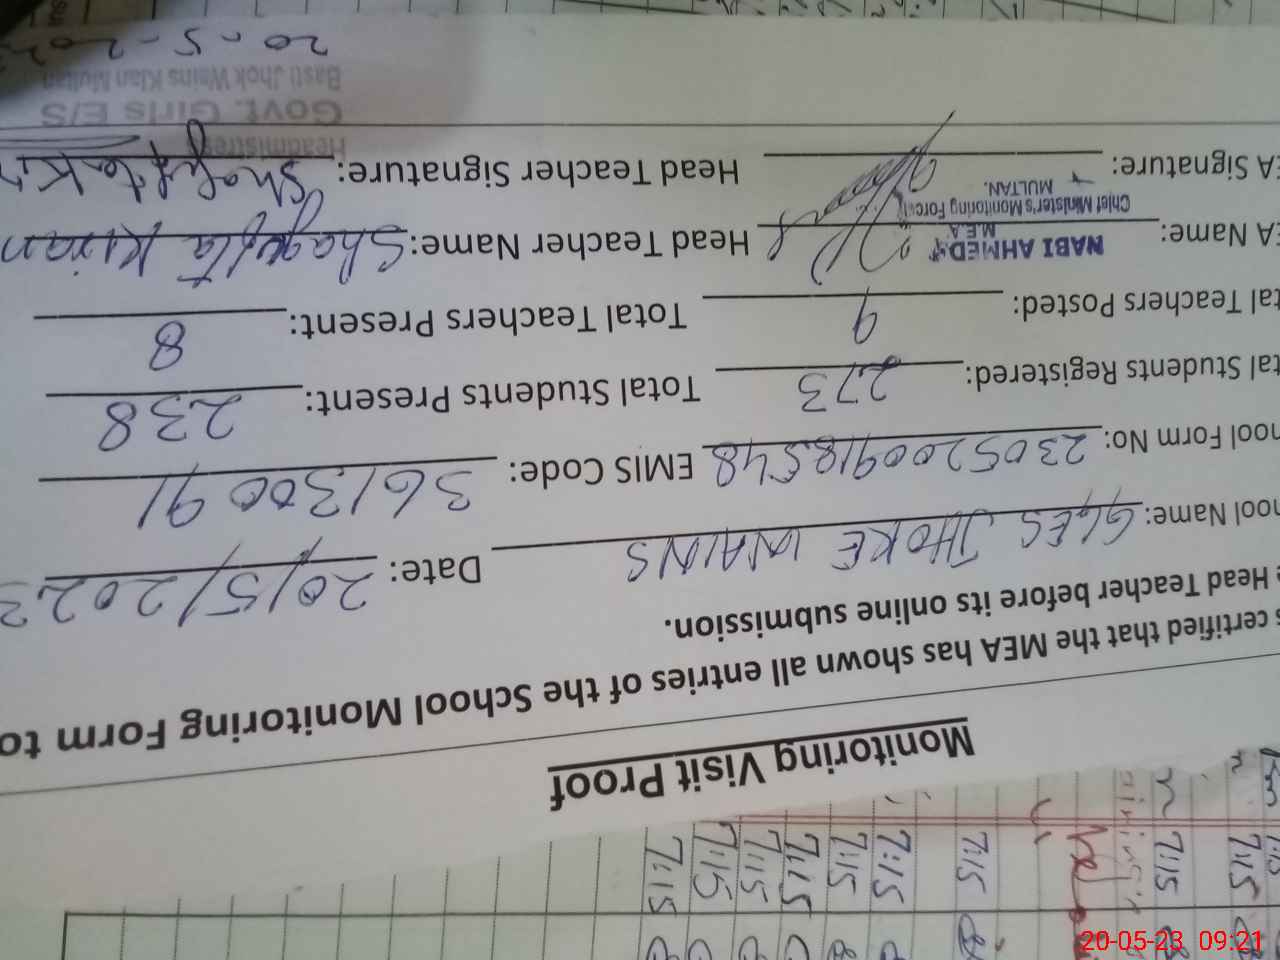 Monitoring Visit Proof
s certified that the MEA has shown all entries of the School Monitoring Form to
e Head Teacher before its online submission.
hool Name: GGES JHOKE WAINS Date: 20/5/2023
hool Form No: 2305200918548 EMIS Code: 36130091
tal Students Registered: 273 Total Students Present: 238
tal Teachers Posted: 9 Total Teachers Present: 8
EA Name: NABI AHMED Head Teacher Name: Shagufta Kiran
M.E.A
Chief Minister's Monitoring Force
MULTAN.
EA Signature: Head Teacher Signature: Shagufta Kir
Headmistres
Govt. Girls E/S
Basti Jhok Wains Klan Multan
20-5-202
7:15 7:15 7:15 7:15 7:15 7:15 7:15 7:15 7:15 7:15
20-05-23 09:21